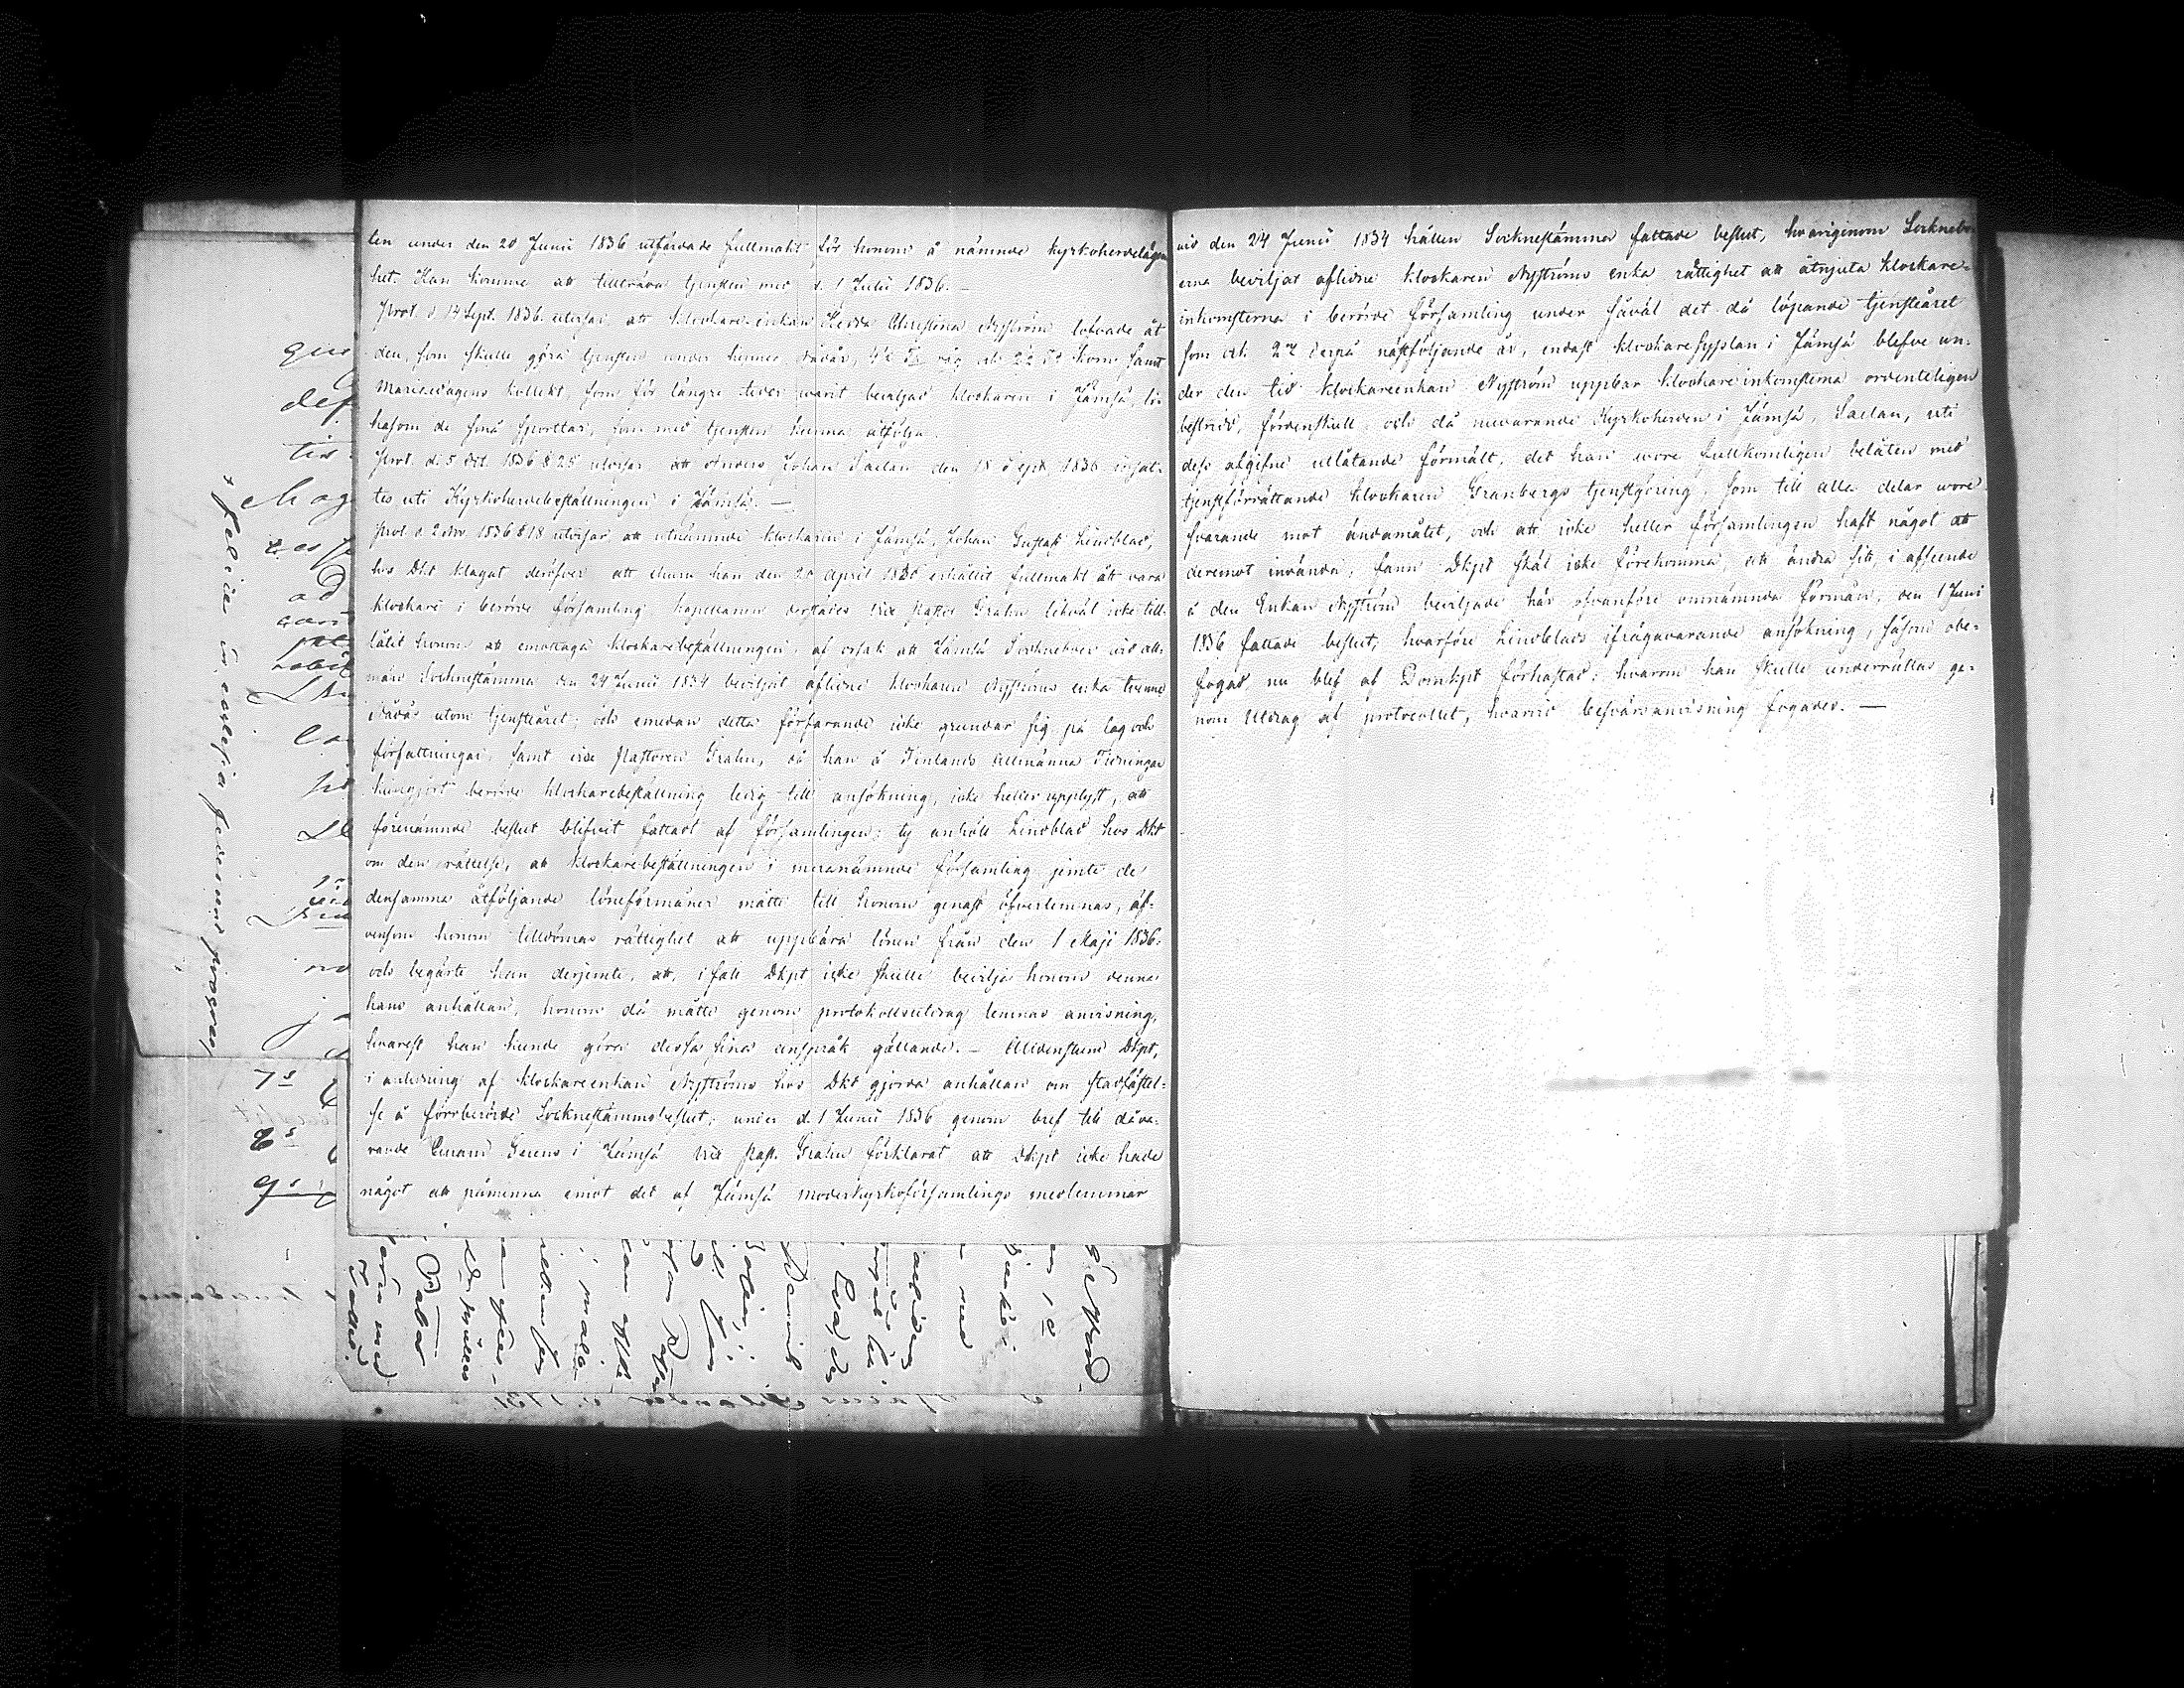 ten under den 20 Junii 1836 utfärdade fullmakt för honom å nämnde Kyrkoherdelägen
het. Han komme att tillträda tjensten med d. 1 Julii 1836. —
Prot. d. 14 Sept. 1836. utvisar, att klockare-enkan Hedda Christina Nyström lofvade åt
den, som skulle göra tjensten under hennes nådår, råg och korn samt
Mariædagens kollekt, som för längre tider varit beviljad klockaren i Jämsä, li-
kasom de små sportlar, som med tjensten kunna åtfölja.
Prot. d. 5 Oct. 1836 § 25 utvisar att Anders Johan Saelan den 18 Sept. 1836 insat-
tes uti Kyrkoherdebeställningen i Jämsä. —
Prot d. 2 Nov 1836 § 18 utvisar att utnämnde klockaren i Jämsä, Johan Gustaf Lindblad,
hos Dkt klagat deröfver att ehuru han den 20 April 1836 erhållit fullmakt att vara
klockare i berörde församling, kapellanen derstädes vice Pastor Grahn likväl icke till-
låtit honom att emottaga klockarebeställningen, af orsak att Jämsä Socknebor vid all-
män Socknestämma den 24 Junii 1834 beviljat aflidne klockaren Nyströms enka tvenne
nådår utom tjensteåret; och emedan detta förfarande icke grundar sig på lag och
författningar, samt vice Pastoren Grahn, då han å Finlands Allmänna Tidningar
kungjort berörde klockarebeställning ledig till ansökning, icke heller upplyst, att
förenämnde beslut blifvit fattadt af församlingen; ty anhöll Lindblad hos Dkt
om den rättelse, att klockarebeställningen i meranämnde församling jemte de
densamma åtföljande löneförmåner måtte till honom genast öfverlemnas, äf-
vensom honom tilldömas rättighet att uppbära lönen från den 1 Maji 1836.
och begärte han derjemte, att, ifall Dkpt icke skulle bevilja honom denna
hans anhållan, honom då måtte genom protokollsutdrag lemnas anvisning,
hvarest han kunde göra dessa sina anspråk gällande. — Alldenstund Dkpt,
i anledning af klockareenkan Nyströms hos Dkt gjorda anhållan om stadfästel-
se å förrberörde Socknestämmobeslut, under d. 1 Junii 1836 genom bref till dåva-
rande Curam Gerens i Jämsä vice Past. Grahn förklarat att Dkpt icke hade
något att påminna emot det af Jämsä moderkyrkoförsamlings medlemmar
vid den 24 Junii 1834 hållen Socknestämma fattade beslut, hvarigenom Sockneb
erna beviljat aflidne klockaren Nyströms enka rättighet att åtnjuta klockare-
inkomsterna i berörde församling under såväl det då löpande tjensteåret
som ock 2ne derpå nästföljande år, endast klockaresysslan i Jämsä blefve un-
der den tid klockareenkan Nyström uppbar klockareinkomsterna ordenteligen
bestridd, fördenskull och då nuvarande Kyrkoherden i Jämsä, Saelan, uti
dess afgifne utlåtande förmält, det han wore fullkomligen belåten med
tjenstförrättande klockaren Granbergs tjenstgöring, som till alla delar wore
svarande mot ändamålet, och att icke heller församlingen haft något att
deremot invända; fann Dkpt skäl icke förekomma, att ändra sitt, i afseende
å den Enkan Nyström beviljade här ofvanföre omnämnda förmån, den 1 Juni
1836 fattade beslut, hvarföre Lindblads ifrågavarande ansökning, såsom obe-
fogad, nu blef af Domkpt förkastad; hvarom han skulle underrättas ge-
nom Utdrag af protocollet, hvarvid besvärsanvisning fogades. —